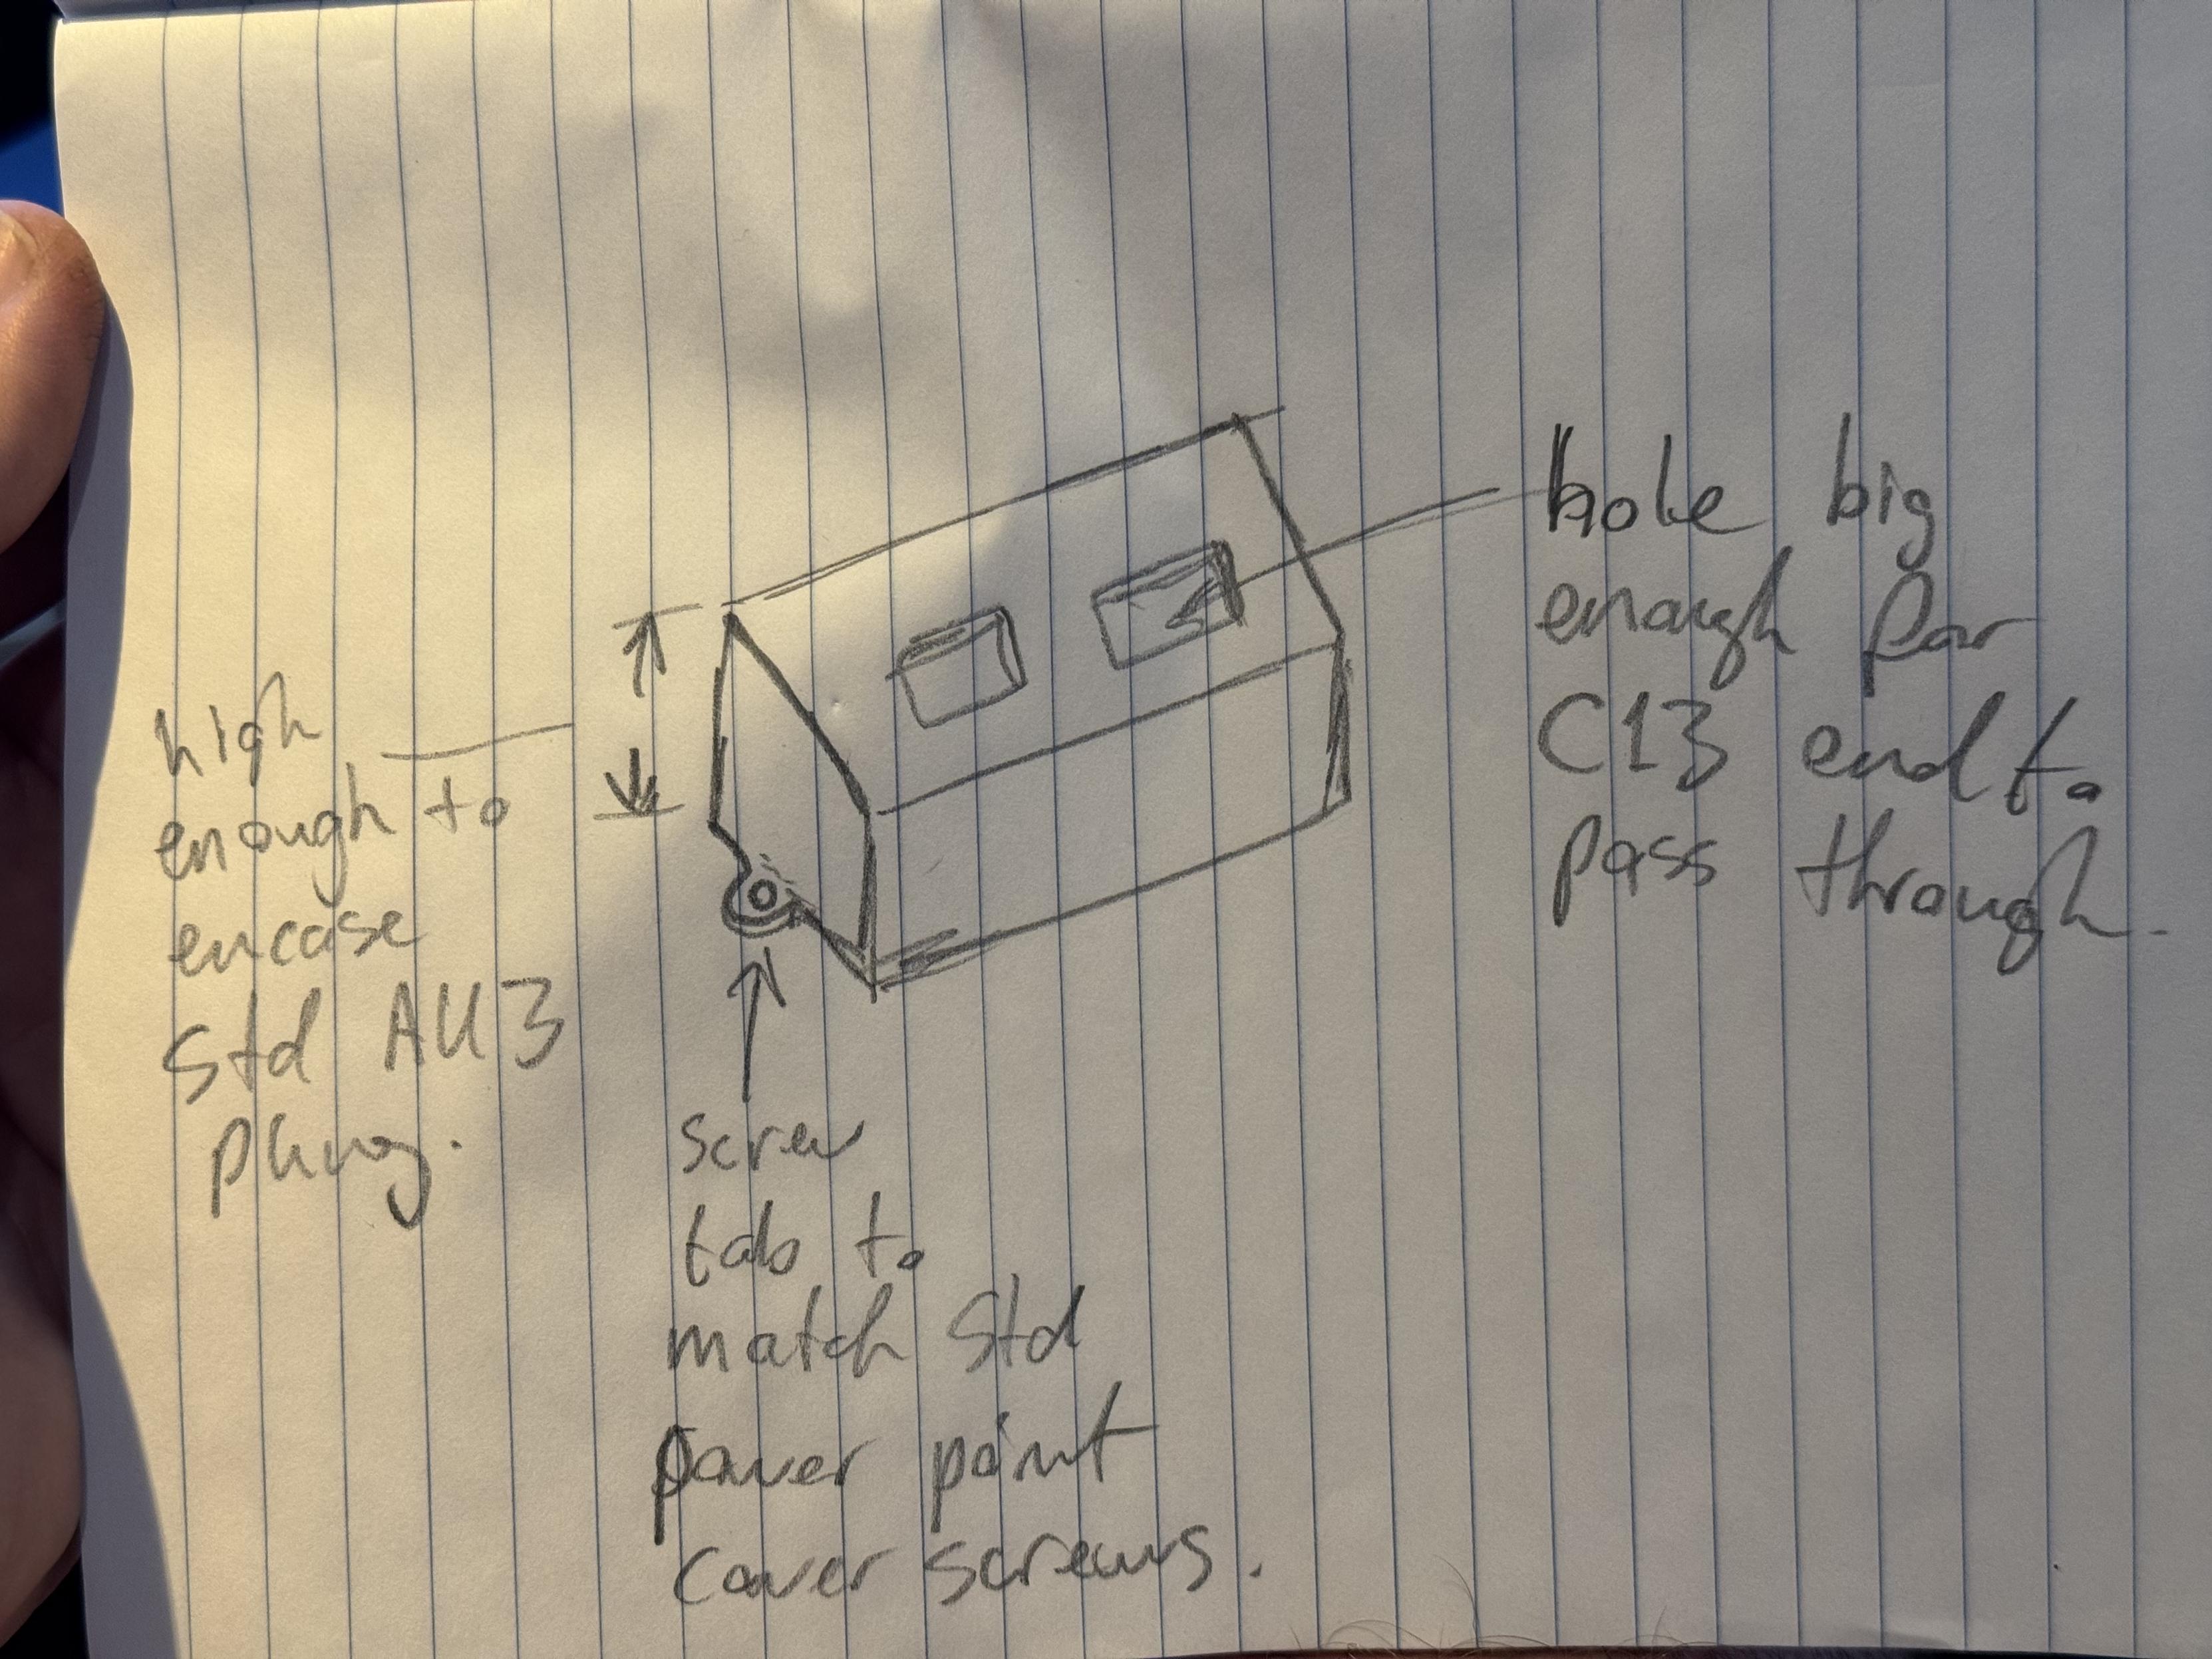 hole big
enough for
C13 end to
pass through.
high
enough to
encase
Std AU 3
plug.
screw
tab to
match Std
power point
cover screws.